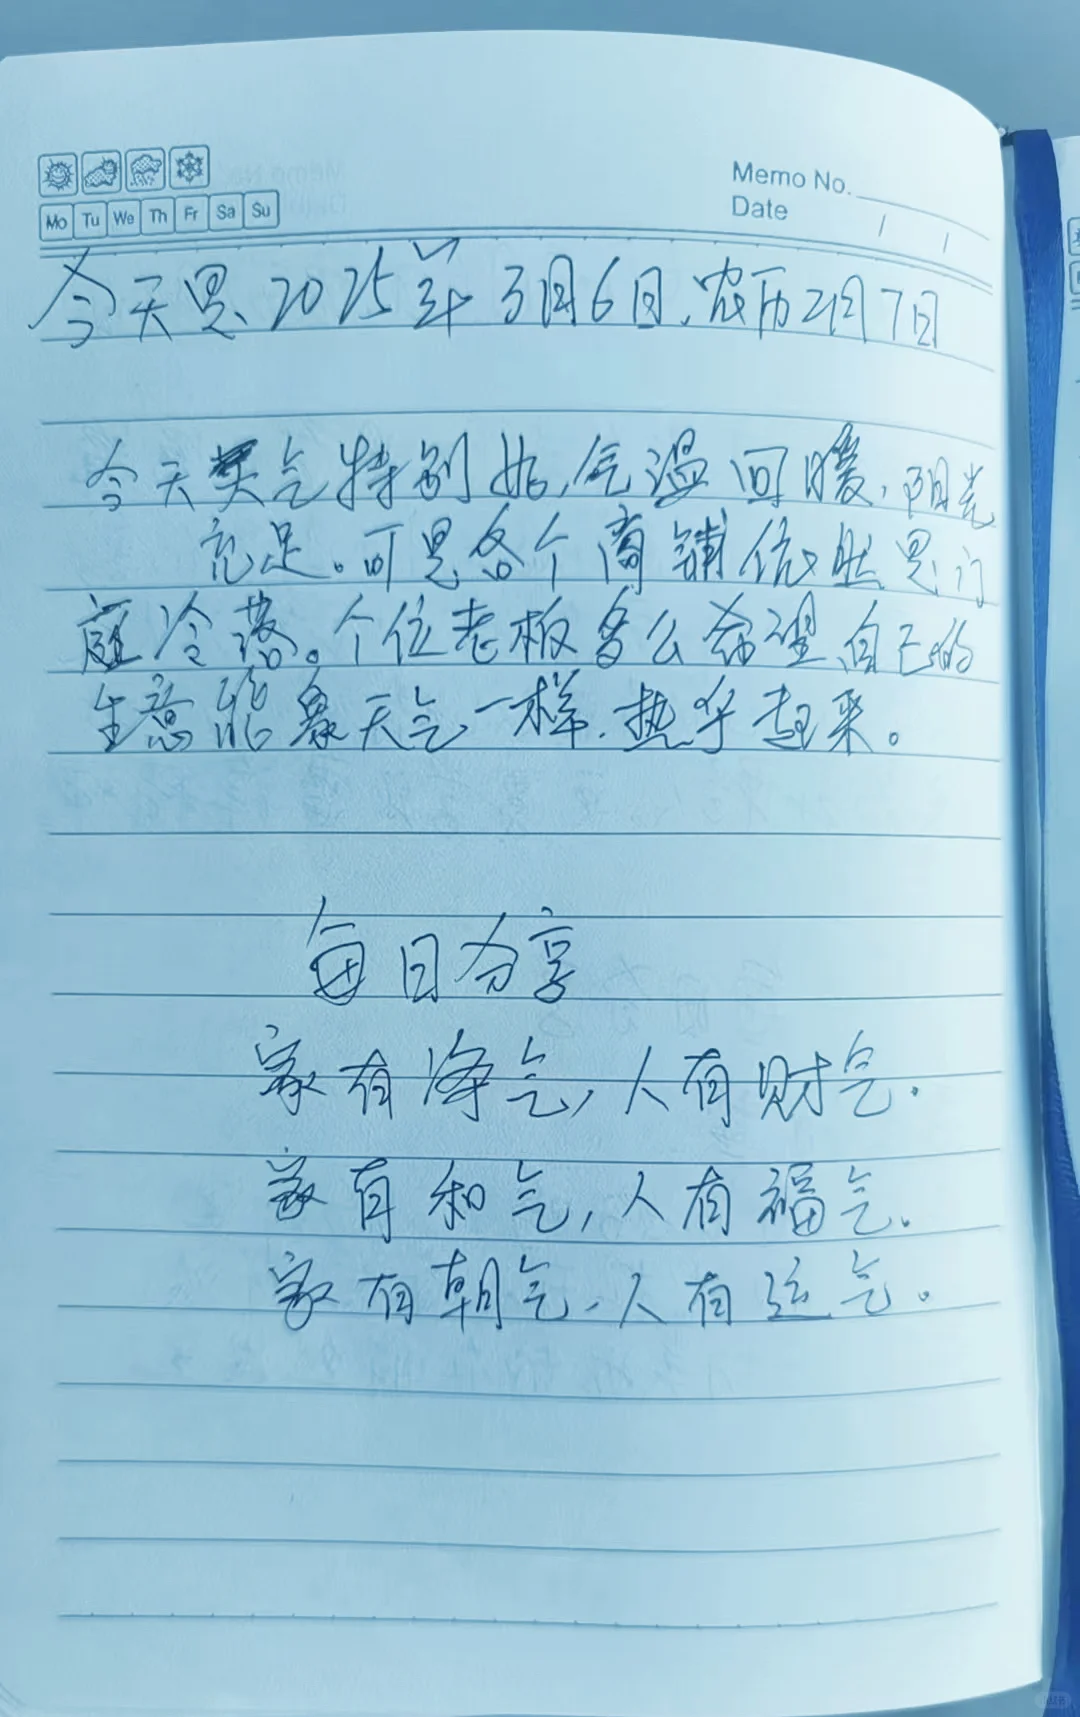 Memo No.
Date / /
Mo Tu We Th Fr Sa Su
今天是、2025年3月6日,农历2月7日
今天天气特别好,气温回暖,阳光
充足。可是各个商铺依然是门
庭冷落。个位老板多么希望自己的
生意能象天气一样,热乎起来。
每日分享
家有净气,人有财气.
家有和气,人有福气。
家有朝气,人有运气。